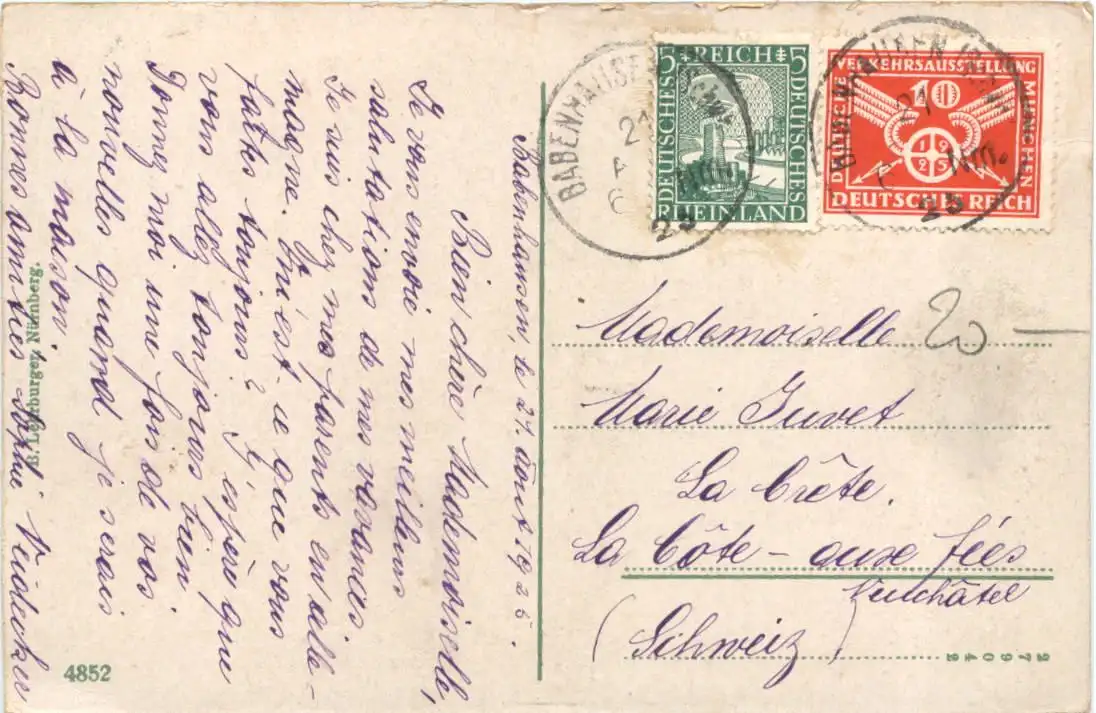 Babenhausen, le 21. août 1925.
Bien chère Mademoiselle,
Je vous envoie mes meilleurs
salutations de mes vacances
Je suis chez mes parents en Alle-
magne. Qu'est-ce que vous
faites toujours? J'espère que
vous allez toujours bien.
Donnez moi une fois de vos
nouvelles quand je serais
à la maison.
Bonnes amitiés
B. Lehrburger, Nürnberg.
4852
5 REICH 5
DEUTSCHES
DEUTSCHES
RHEINLAND
BABENHAUSEN (SCHW.
21
25
VERKERSAUSSTELLUNG
DEUTSCHE
MÜNCHEN
10
1925
DEUTSCHES REICH
BABENHAUSEN (SCHW.
21
25
20 —
Mademoiselle
Marie Juvet
La Crête.
La Côte-aux-fées
Neuchâtel
(Schweiz)
27904 2